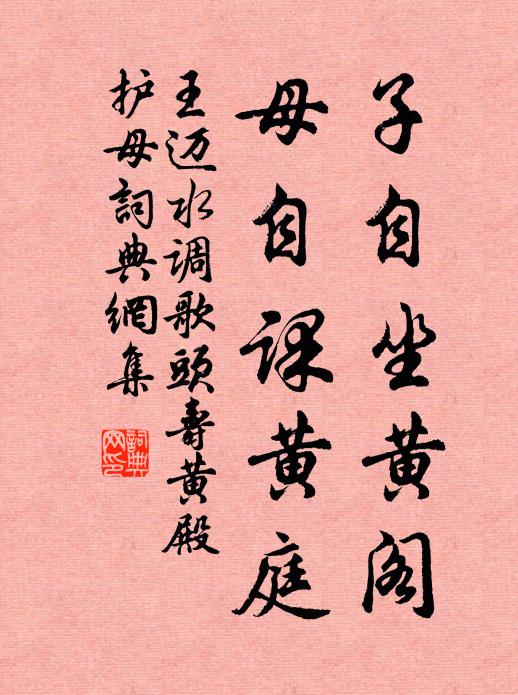 子自坐黄阁
母自课黄庭
王迈水调歌頭壽黄殿
护母詞典網集
詞典
网印